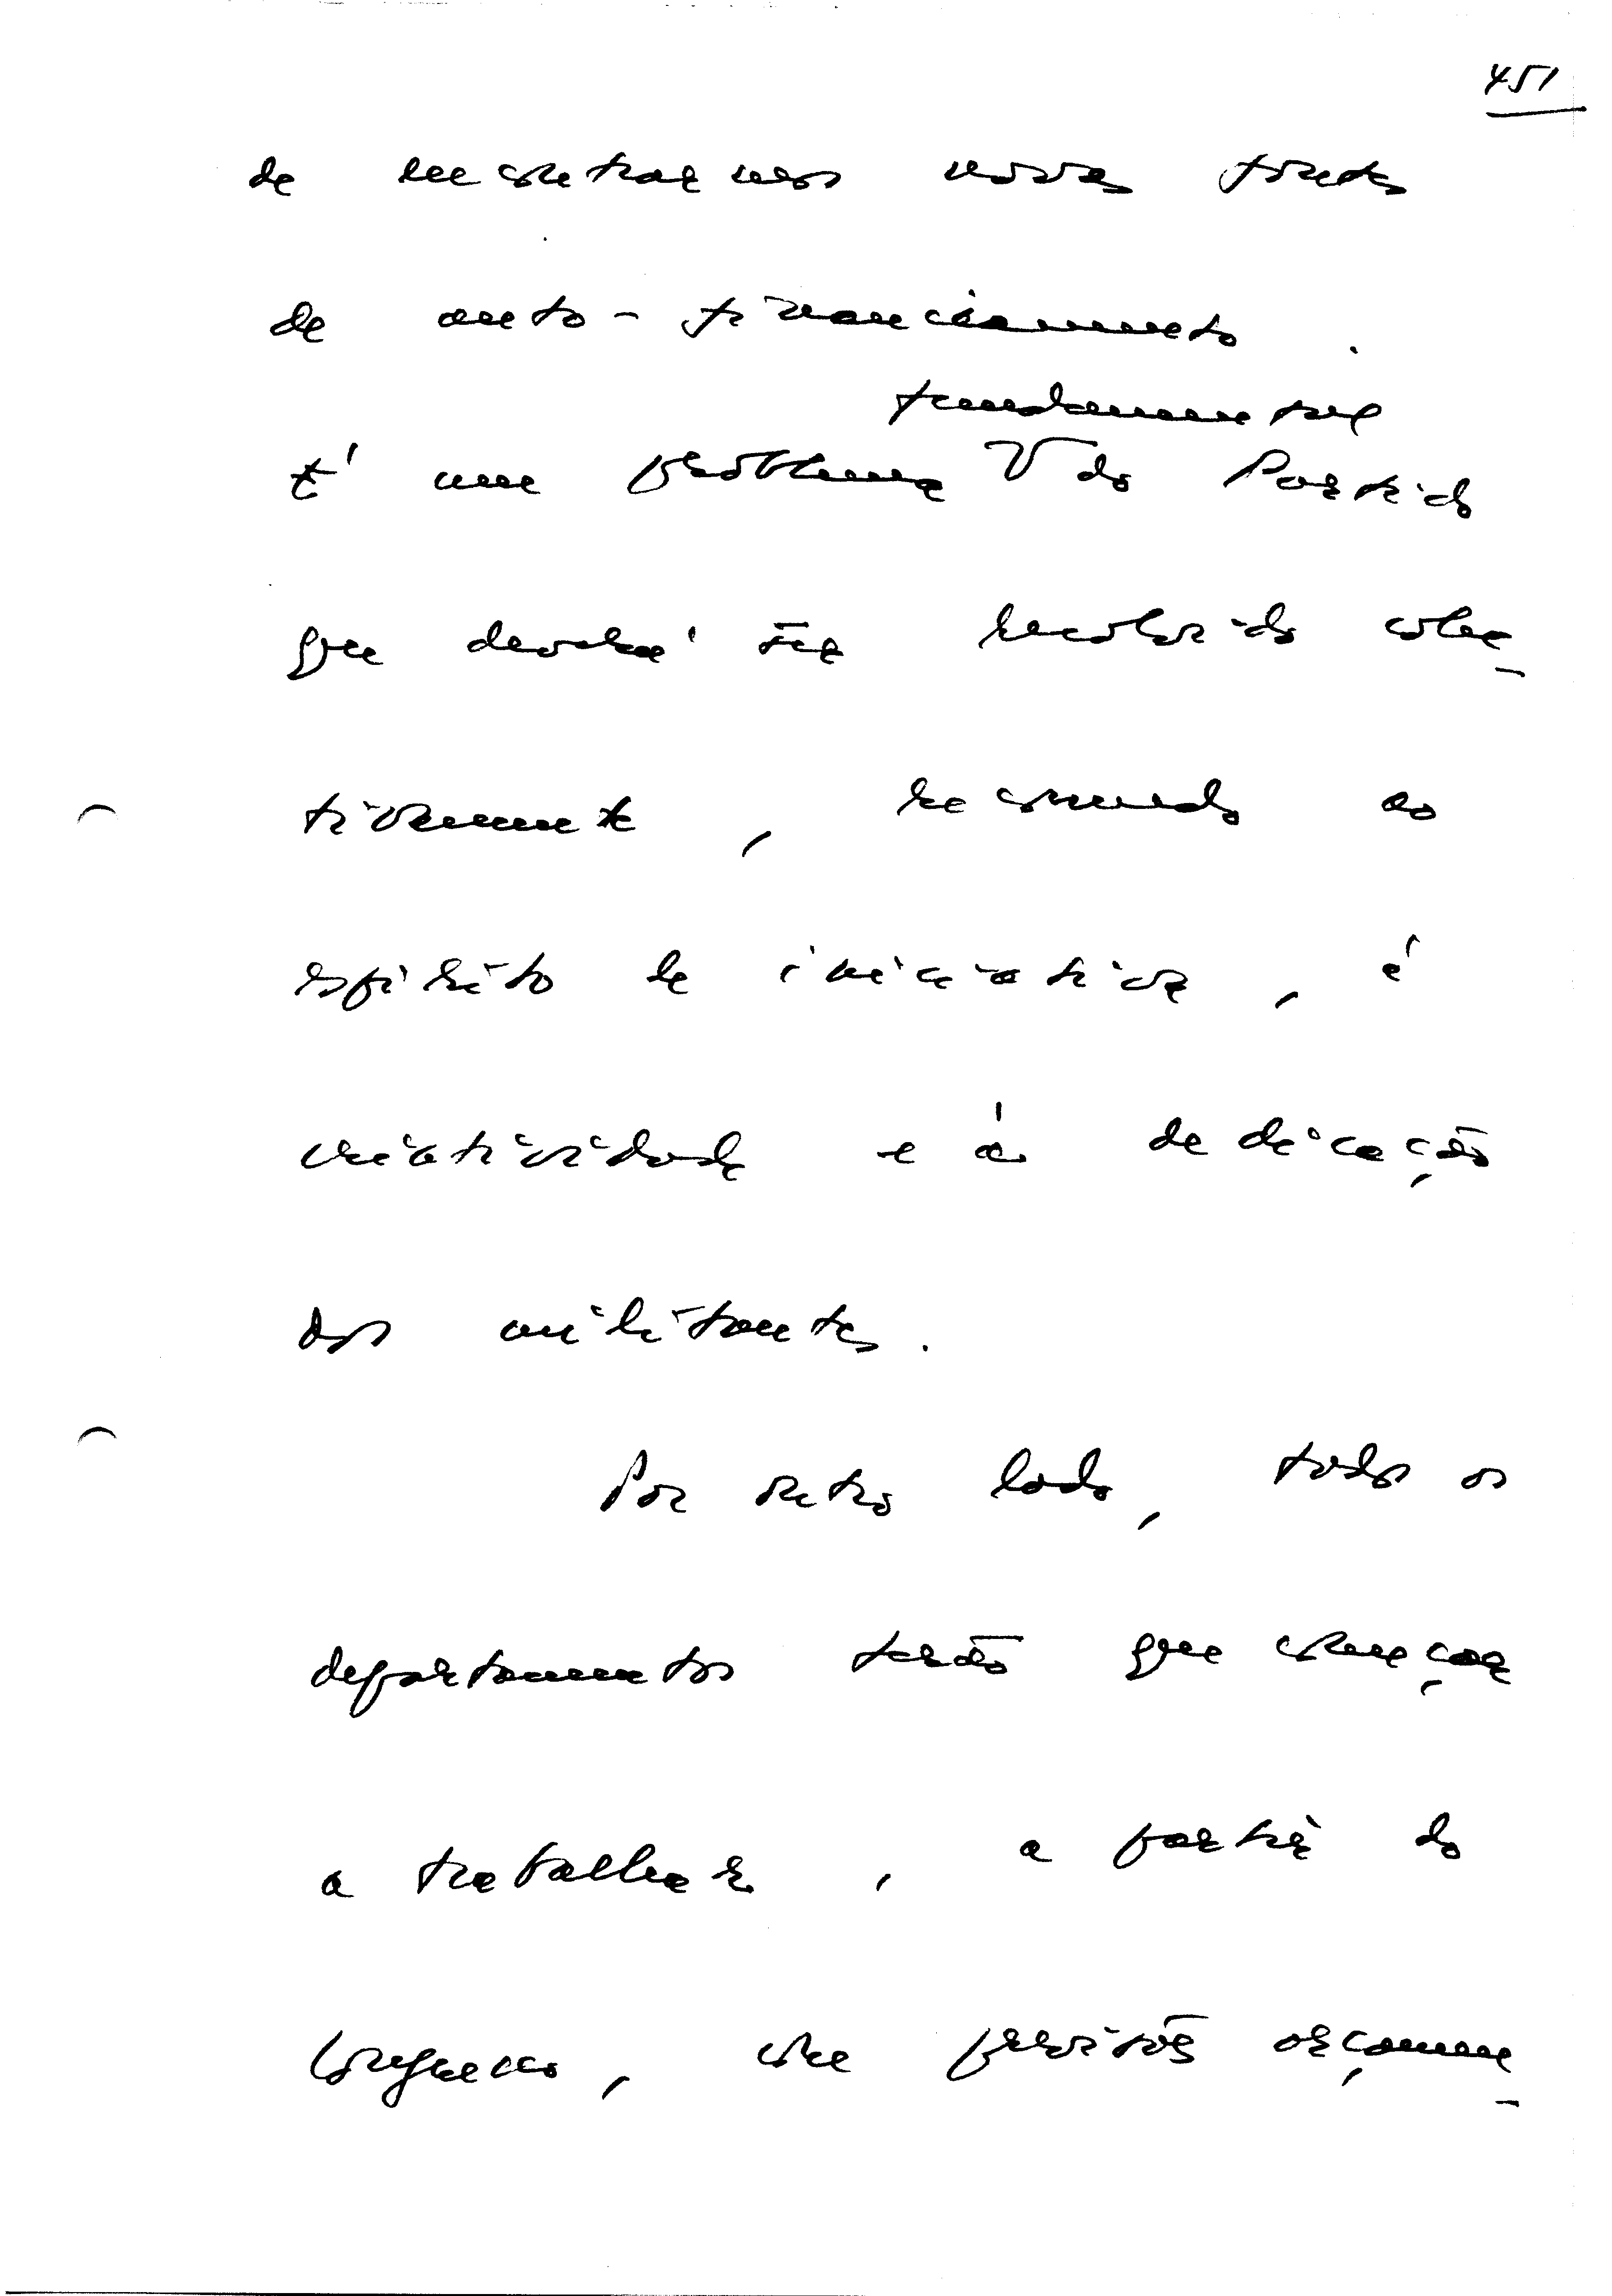 451
de encontrarmos novas fontes
de auto-financiamento.
fundamental
É um problema V do Partido
que deverá ser resolvido cole-
tivamente, recorrendo ao
espírito de iniciativa, à
criatividade e à dedicação
dos militantes.
Por outro lado, todos os
departamentos terão que começar
a trabalhar, a partir do
Congresso, com previsões orçamen-